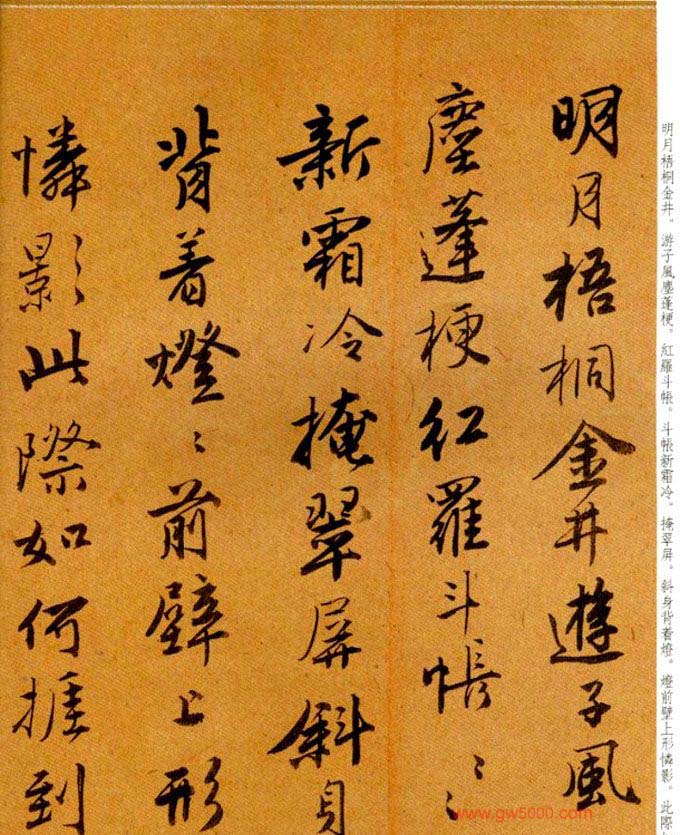 明月梧桐金井遊子風
塵蓬梗紅羅斗帳〻〻
新霜冷掩翠屏斜身
背着燈〻前壁上形
憐影此際如何捱到
明月梧桐金井。游子風塵蓬梗。紅羅斗帳。斗帳新霜冷。掩翠屏。斜身背着燈。燈前壁上形憐影。此際
www.gw5000.com